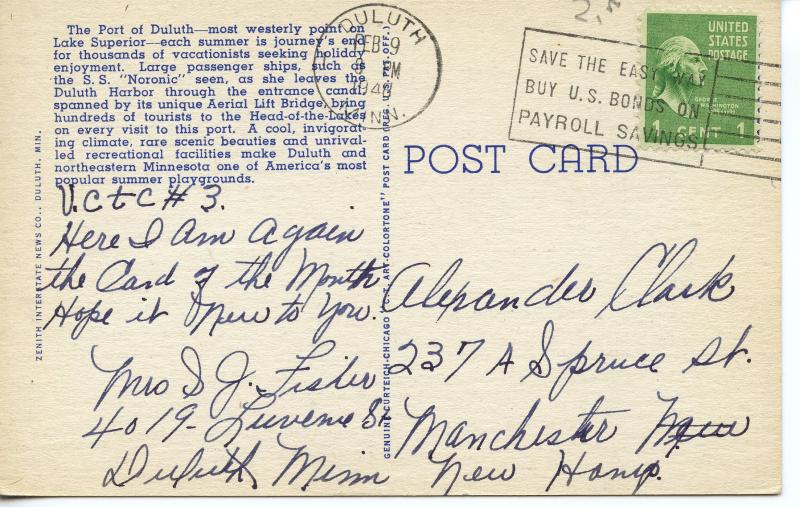 The Port of Duluth—most westerly point on
Lake Superior—each summer is journey's end
for thousands of vacationists seeking holiday
enjoyment. Large passenger ships, such as
the S.S. "Noronic" seen, as she leaves the
Duluth Harbor through the entrance canal
spanned by its unique Aerial Lift Bridge, bring
hundreds of tourists to the Head-of-the-Lakes
on every visit to this port. A cool, invigorat-
ing climate, rare scenic beauties and unrival-
led recreational facilities make Duluth and
northeastern Minnesota one of America's most
popular summer playgrounds.
V.C+C # 3.
Here I Am Again
the Card of the Month
Hope it New to You.
Mrs D J. Fisher
4019- Luverne St
Duluth Minn
ZENITH INTERSTATE NEWS CO., DULUTH, MIN.
GENUINE CURTEICH-CHICAGO "C.T. ART-COLORTONE" POST CARD (REG. U.S. PAT. OFF.)
DULUTH
FEB 9
PM
MINN.
SAVE THE EASY WAY
BUY U.S. BONDS ON
PAYROLL SAVINGS
UNITED
STATES
POSTAGE
GEORGE
WASHINGTON
1 CENT 1
POST CARD
Alexander Clark
237 A Spruce St.
Manchester New
New Hamp.